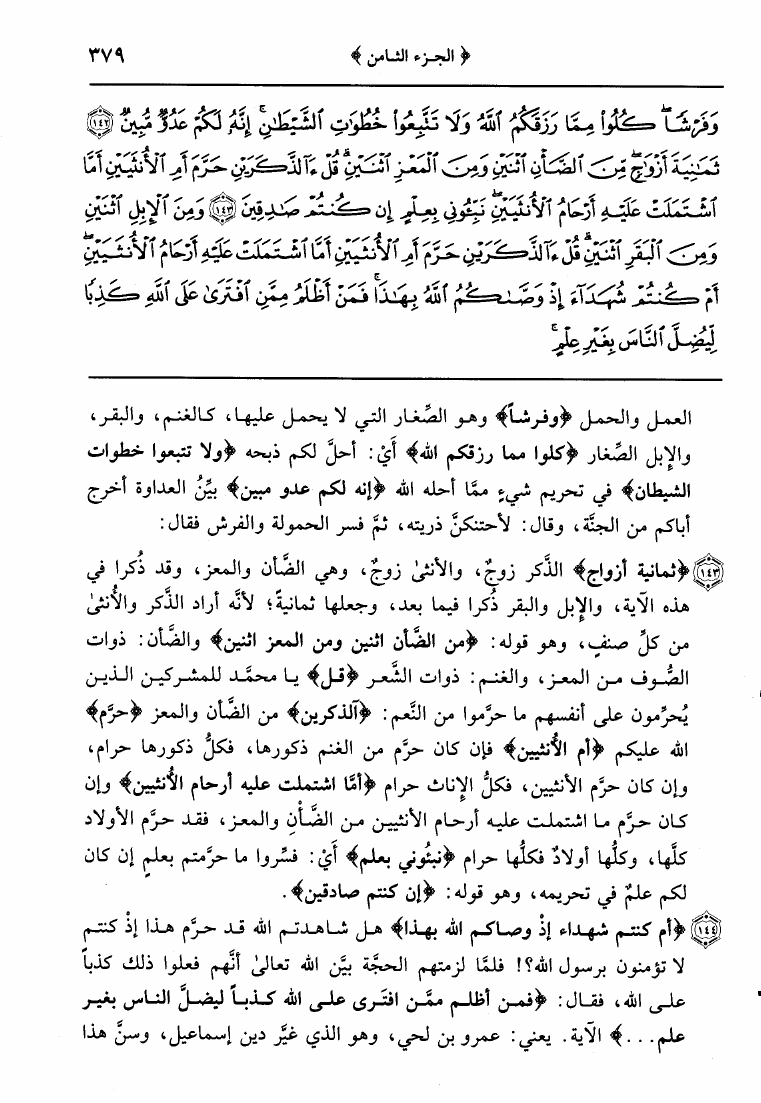 ﴿ الجزء الثامن ﴾ ٣٧٩
وَفَرْشًا ۚ كُلُوا۟ مِمَّا رَزَقَكُمُ ٱللَّهُ وَلَا تَتَّبِعُوا۟ خُطُوَٰتِ ٱلشَّيْطَٰنِ ۚ إِنَّهُۥ لَكُمْ عَدُوٌّ مُّبِينٌ ١٤٢
ثَمَٰنِيَةَ أَزْوَٰجٍ ۖ مِّنَ ٱلضَّأْنِ ٱثْنَيْنِ وَمِنَ ٱلْمَعْزِ ٱثْنَيْنِ ۗ قُلْ ءَآلذَّكَرَيْنِ حَرَّمَ أَمِ ٱلْأُنثَيَيْنِ أَمَّا
ٱشْتَمَلَتْ عَلَيْهِ أَرْحَامُ ٱلْأُنثَيَيْنِ ۖ نَبِّـُٔونِى بِعِلْمٍ إِن كُنتُمْ صَٰدِقِينَ ١٤٣ وَمِنَ ٱلْإِبِلِ ٱثْنَيْنِ
وَمِنَ ٱلْبَقَرِ ٱثْنَيْنِ ۗ قُلْ ءَآلذَّكَرَيْنِ حَرَّمَ أَمِ ٱلْأُنثَيَيْنِ أَمَّا ٱشْتَمَلَتْ عَلَيْهِ أَرْحَامُ ٱلْأُنثَيَيْنِ ۖ
أَمْ كُنتُمْ شُهَدَآءَ إِذْ وَصَّىٰكُمُ ٱللَّهُ بِهَٰذَا ۚ فَمَنْ أَظْلَمُ مِمَّنِ ٱفْتَرَىٰ عَلَى ٱللَّهِ كَذِبًا
لِّيُضِلَّ ٱلنَّاسَ بِغَيْرِ عِلْمٍ ۗ
العمل والحمل ﴿وفرشاً﴾ وهو الصِّغار التي لا يحمل عليها، كالغنم، والبقر،
والإبل الصِّغار ﴿كلوا مما رزقكم الله﴾ أَيْ: أحلَّ لكم ذبحه ﴿ولا تتبعوا خطوات
الشيطان﴾ في تحريم شيءٍ ممَّا أحله الله ﴿إنه لكم عدو مبين﴾ بيِّنُ العداوة أخرج
أباكم من الجنَّة، وقال: لأحتنكنَّ ذريته، ثمَّ فسر الحمولة والفرش فقال:
١٤٣ ﴿ثمانية أزواج﴾ الذَّكر زوجٌ، والأنثىٰ زوجٌ، وهي الضَّأن والمعز، وقد ذُكرا في
هذه الآية، والإبل والبقر ذُكرا فيما بعد، وجعلها ثمانيةً؛ لأنَّه أراد الذَّكر والأُنثىٰ
من كلِّ صنفٍ، وهو قوله: ﴿من الضَّأن اثنين ومن المعز اثنين﴾ والضَّأن: ذوات
الصُّوف من المعز، والغنم: ذوات الشَّعر ﴿قل﴾ يا محمَّد للمشركين الذين
يُحرِّمون على أنفسهم ما حرَّموا من النَّعم: ﴿آلذكرين﴾ من الضَّأن والمعز ﴿حرَّم﴾
الله عليكم ﴿أم الأُنثيين﴾ فإن كان حرَّم من الغنم ذكورها، فكلُّ ذكورها حرام،
وإن كان حرَّم الأنثيين، فكلُّ الإناث حرام ﴿أمَّا اشتملت عليه أرحام الأُنثيين﴾ وإن
كان حرَّم ما اشتملت عليه أرحام الأنثيين من الضَّأْنِ والمعز، فقد حرَّم الأولاد
كلَّها، وكلُّها أولادٌ فكلُّها حرام ﴿نبئُوني بعلم﴾ أَيْ: فسِّروا ما حرَّمتم بعلمٍ إن كان
لكم علمٌ في تحريمه، وهو قوله: ﴿إن كنتم صادقين﴾.
١٤٤ ﴿أم كنتم شهداء إذْ وصاكم الله بهذا﴾ هل شاهدتم الله قد حرَّم هذا إذْ كنتم
لا تؤمنون برسول الله؟! فلمَّا لزمتهم الحجَّة بيَّن الله تعالىٰ أنَّهم فعلوا ذلك كذباً
على الله، فقال: ﴿فمن أظلم ممَّن افترى على الله كذباً ليضلَّ الناس بغير
علم...﴾ الآية. يعني: عمرو بن لحي، وهو الذي غيَّر دين إسماعيل، وسنَّ هذا